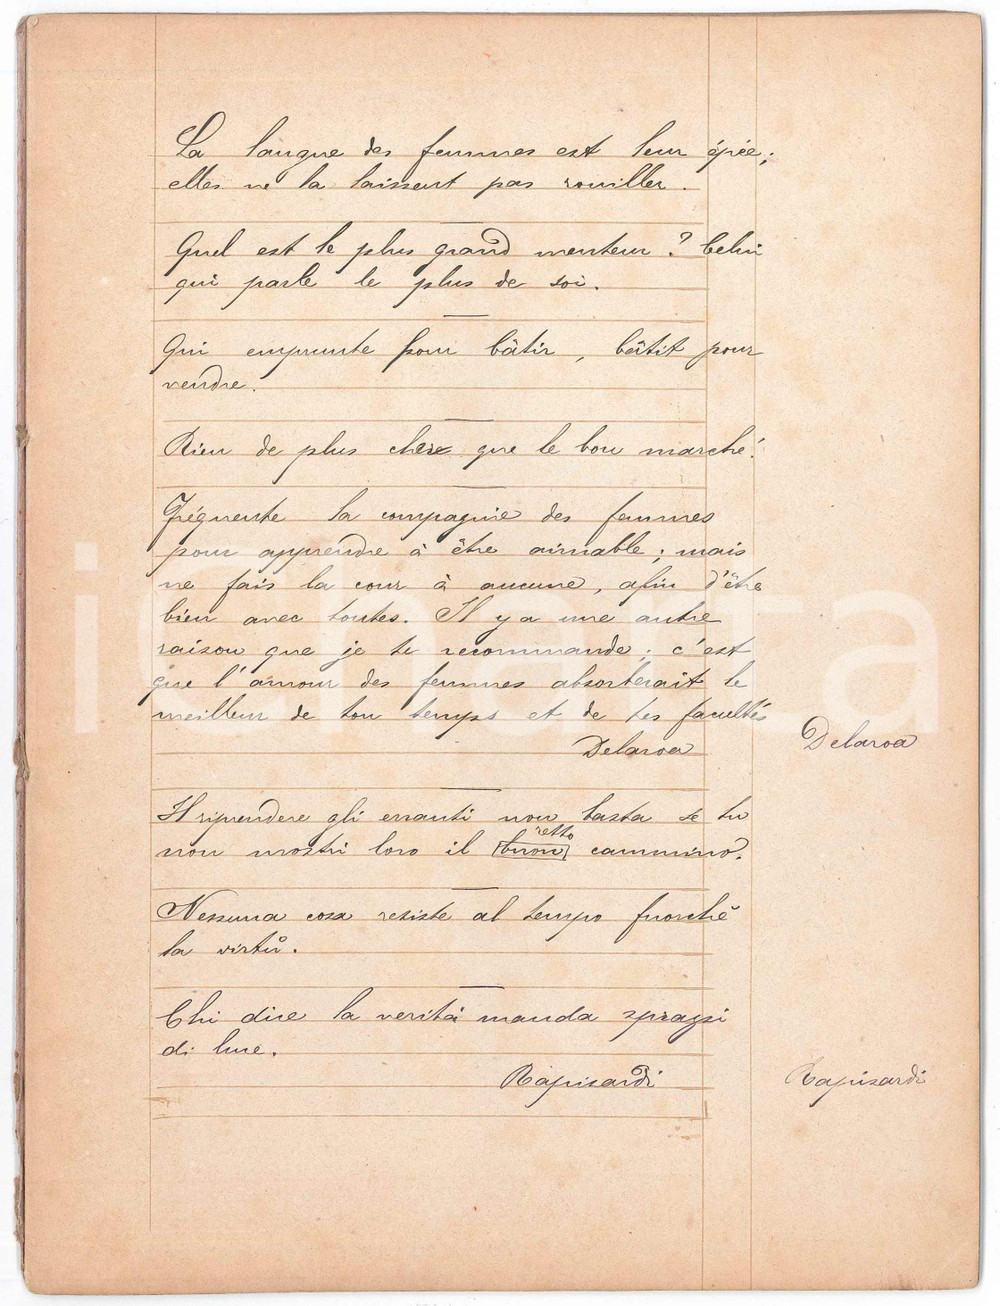 La langue des femmes est leur épée;
elles ne la laissent pas rouiller.
Quel est le plus grand menteur? Celui
qui parle le plus de soi.
Qui emprunte pour bâtir, bâtit pour
vendre.
Rien de plus cher que le bon marché!
Fréquente la compagnie des femmes
pour apprendre à être aimable; mais
ne fais la cour à aucune, afin d'être
bien avec toutes. Il y a une autre
raison que je te recommande; c'est
que l'amour des femmes absorberait le
meilleur de ton temps et de tes facultés
Delaroa
Delaroa
Il riprendere gli erranti non basta se tu
retto
non mostri loro il [buon] cammino.
Nessuna cosa resiste al tempo fuorchè
la virtù.
Chi dice la verità manda sprazzi
di luce.
Rapisardi
Rapisardi
icharta